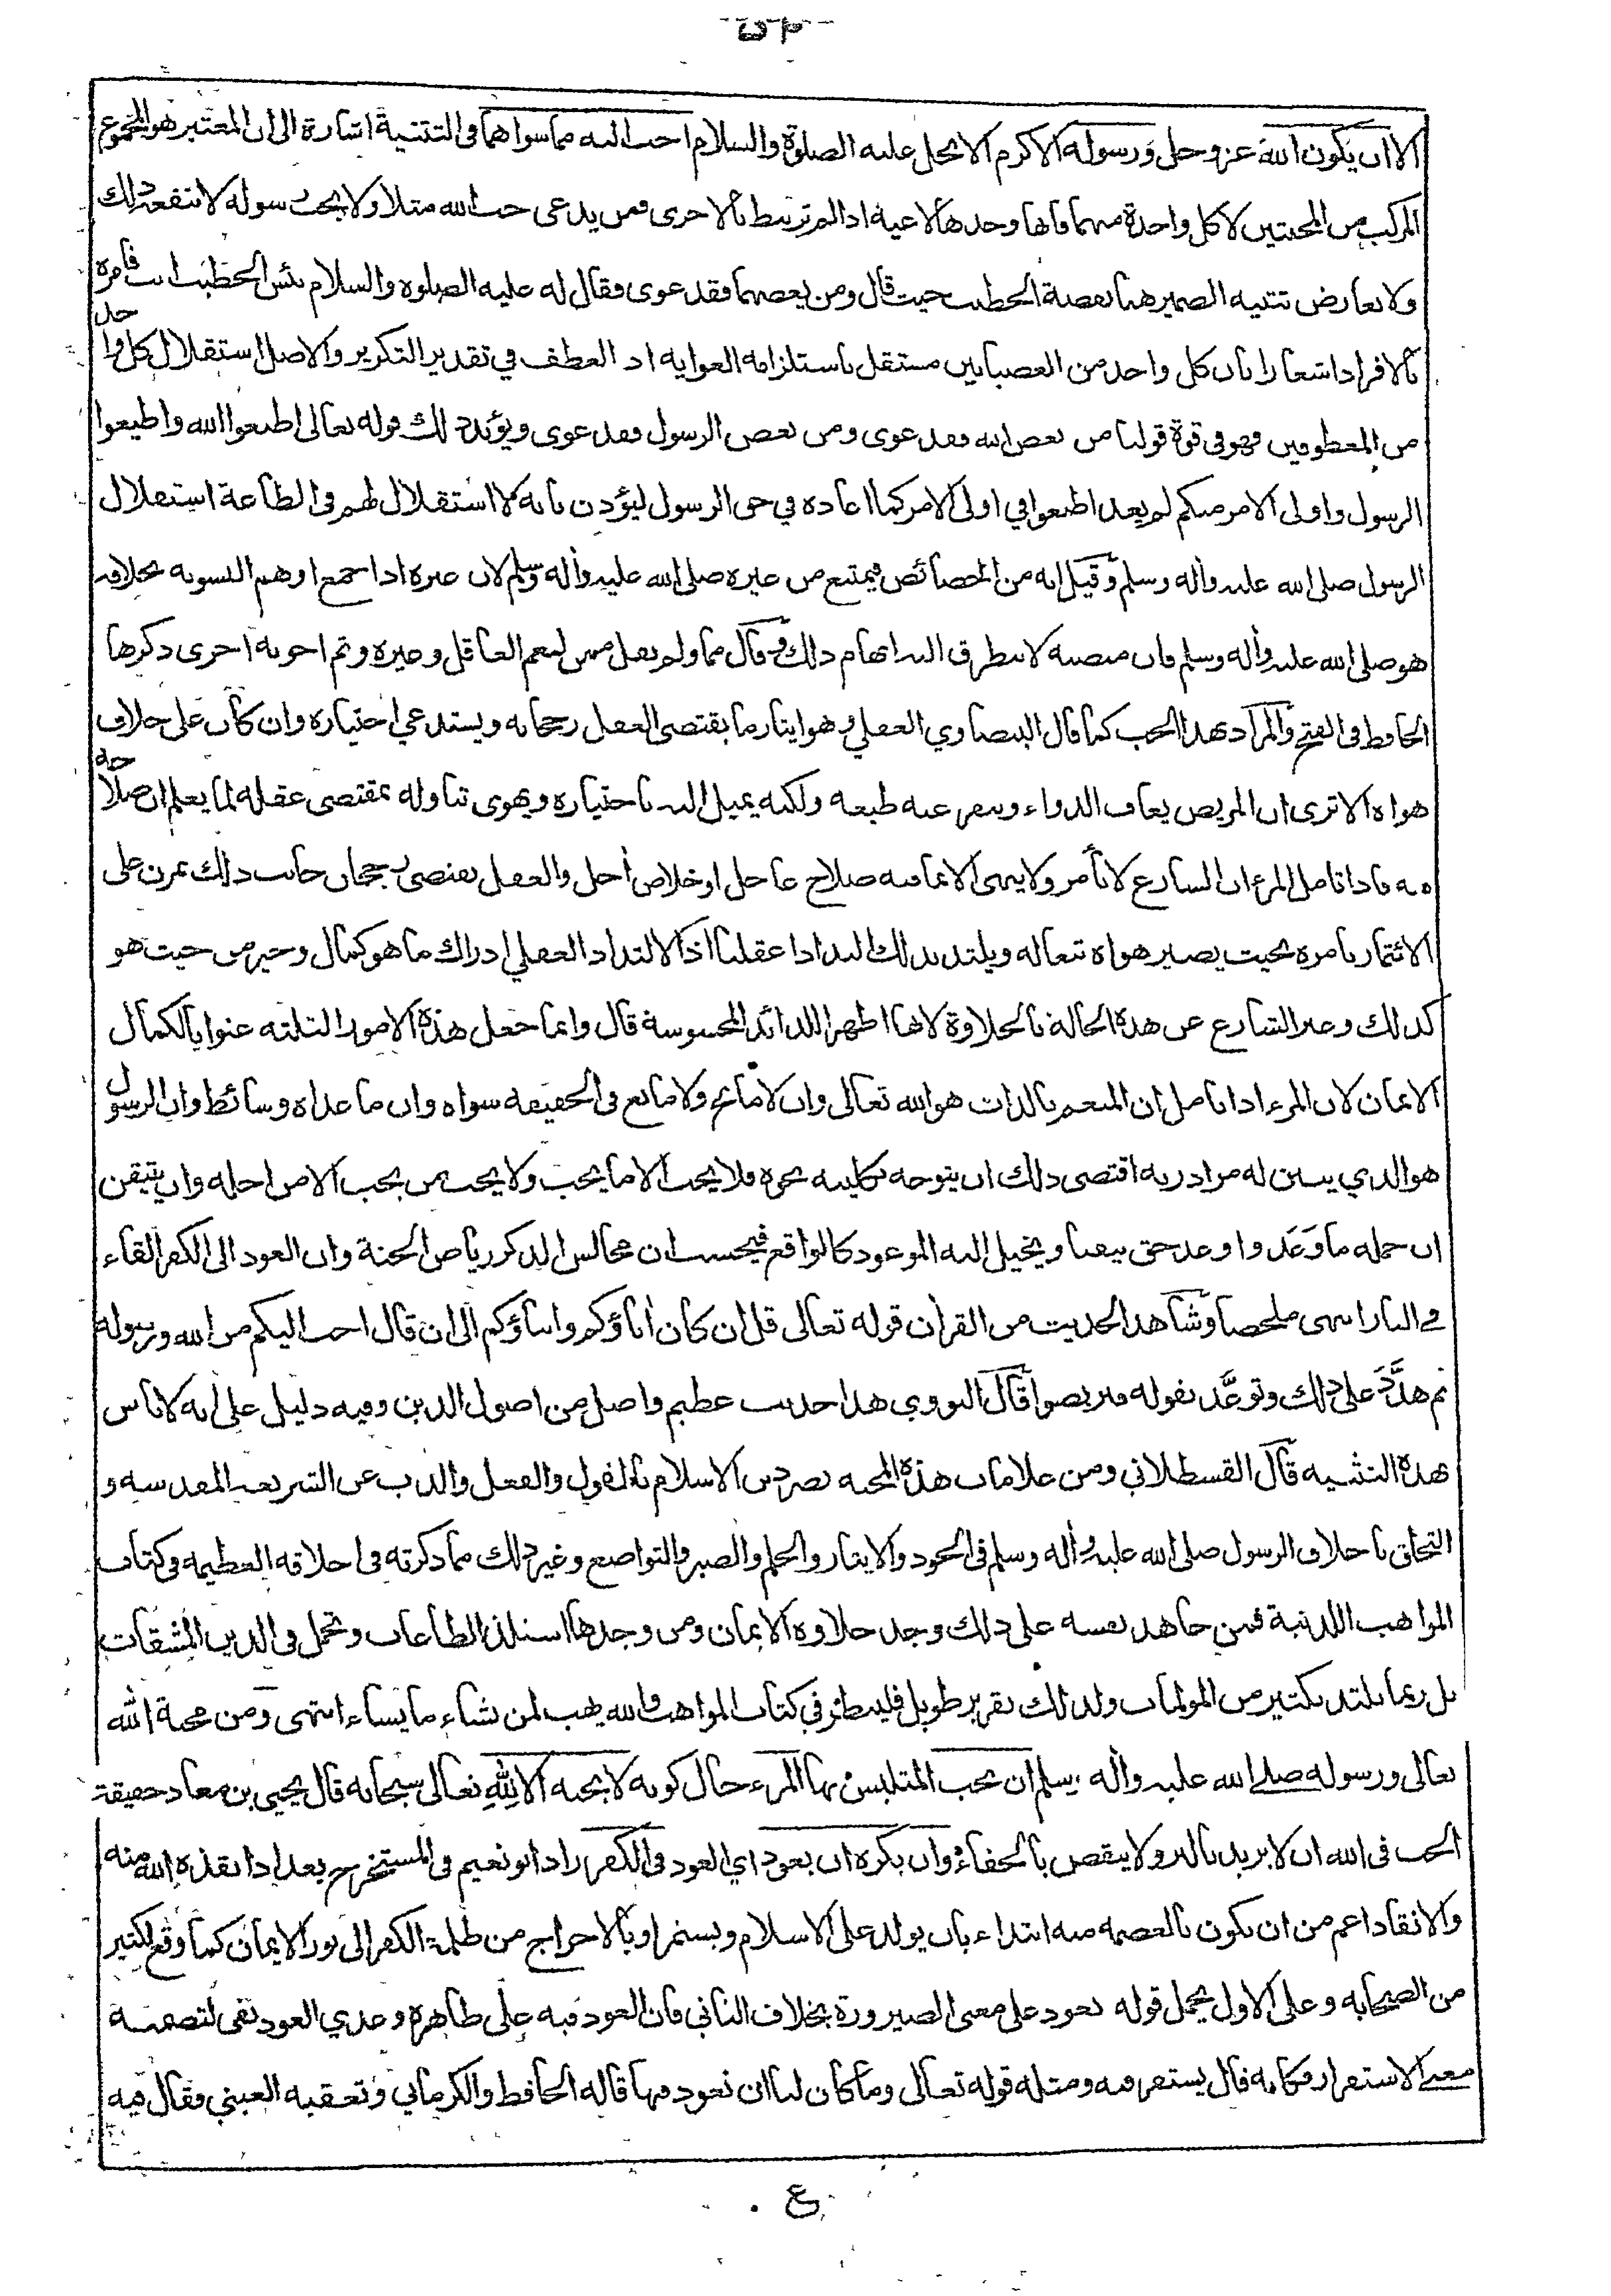 ٥٢
الا ان يكون الله عز وجل ورسوله الاكرم الاجل عليه الصلوة والسلام احب اليه مما سواهما في التثنية اشارة الى ان المعتبر هو المجموع
المركب من المحبتين لا كل واحدة منهما فانها وحدها لاغية اذا لم ترتبط بالاخرى فمن يدعى حب الله مثلا ولا يحب رسوله لا ينفعه ذلك
ولا يعارض تثنية الضمير هنا بقصة الخطيب حيث قال ومن يعصهما فقد غوى فقال له عليه الصلوة والسلام بئس الخطيب انت فامره
بالافراد اشعارا بان كل واحد من العصيانين مستقل باستلزامه الغواية اذ العطف في تقدير التكرير والاصل استقلال كل واحد
من المعطوفين فهو في قوة قولنا من يعص الله فقد غوى ومن يعص الرسول فقد غوى ويؤيد ذلك قوله تعالى اطيعوا الله واطيعوا
الرسول واولى الامر منكم لم يعد اطيعوا في اولى الامر كما اعاده في حق الرسول ليؤذن بانه لا استقلال لهم في الطاعة استقلال
الرسول صلى الله عليه واله وسلم وقيل انه من الخصائص فيمتنع من غيره صلى الله عليه واله وسلم لان غيره اذا جمع اوهم التسوية بخلافه
هو صلى الله عليه واله وسلم فان منصبه لا يتطرق اليه ايهام ذلك وقال مما ولم يقل ممن ليعم العاقل وغيره وثم اجوبة اخرى ذكرها
الحافظ في الفتح والمراد بهذا الحب كما قال البيضاوي العقلي وهو ايثار ما يقتضى العقل رجحانه ويستدعي اختياره وان كان على خلاف
هواه الا ترى ان المريض يعاف الدواء وينفر عنه طبعه ولكنه يميل اليه باختياره ويهوى تناوله بمقتضى عقله لما يعلم ان صلاحه
فيه فاذا تامل المرء ان الشارع لا يأمر ولا ينهى الا بما فيه صلاح عاجل او خلاص أجل والعقل يقتضى رجحان جانب ذلك تمرن على
الائتمار بامره بحيث يصير هواه تبعا له ويلتذ بذلك التذاذا عقليا اذ الالتذاذ العقلي ادراك ما هو كمال وخير من حيث هو
كذلك وعبر الشارع عن هذه الحالة بالحلاوة لانها اظهر اللذائذ المحسوسة قال وانما جعل هذه الامور الثلثة عنوانا لكمال
الايمان لان المرء اذا تامل ان المنعم بالذات هو الله تعالى وان لا مانح ولا مانع في الحقيقة سواه وان ما عداه وسائط وان الرسول
هو الذي يبين له مراد ربه اقتضى ذلك ان يتوجه بكليته نحوه فلا يحب الا ما يحب ولا يحب من يحب الا من اجله وان يتيقن
ان جملة ما وَعَد واوعد حق يقينا ويخيل اليه الموعود كالواقع فيحسب ان مجالس الذكر رياض الجنة وان العود الى الكفر القاء
في النار انتهى ملخصا وشاهد الحديث من القرأن قوله تعالى قل ان كان أباؤكم وابناؤكم الى ان قال احب اليكم من الله ورسوله
ثم هدَّدَ على ذلك وتوعَّد بقوله فتربصوا قال النووي هذا حديث عظيم واصل من اصول الدين وفيه دليل على انه لا باس
بهذه التثنيه قال القسطلاني ومن علامات هذه المحبه نصر دين الاسلام بالقول والفعل والذب عن الشريعة المقدسه و
التخلق باخلاق الرسول صلى الله عليه واله وسلم في الجود والايثار والحلم والصبر والتواضع وغير ذلك مما ذكرته في اخلاقه العظيمه في كتاب
المواهب اللدنية فمن جاهد نفسه على ذلك وجد حلاوة الايمان ومن وجدها استلذ الطاعات وتحمل في الدين المشقات
بل ربما يلتذ بكثير من المولمات ولذلك تقرير طويل فلينظر في كتاب المواهب والله يهب لمن يشاء ما يشاء انتهى ومن محبة الله
تعالى ورسوله صلى الله عليه واله وسلم ان يحب المتلبس بها المرء حال كونه لا يحبه الا لِلّٰهِ تعالى سبحانه قال يحيى بن معاذ حقيقة
الحب في الله ان لا يزيد بالبر ولا ينقص بالجفاء وان يكره ان يعود اي العود في الكفر زاد ابو نعيم في المستخرج بعد اذ انقذه الله منه
والانقاذ اعم من ان يكون بالعصمة منه ابتداء بان يولد على الاسلام ويستمر او بالاخراج من ظلمة الكفر الى نور الايمان كما وقع لكثير
من الصحابه وعلى الاول يحمل قوله يعود على معنى الصيرورة بخلاف الثاني فان العود فيه على ظاهره وعدي العود بفى لتضمنه
معنى الاستقرار فكانه قال يستقر فيه ومثله قوله تعالى وما كان لنا ان نعود فيها قاله الحافظ والكرماني وتعقبه العيني فقال فيه
ع